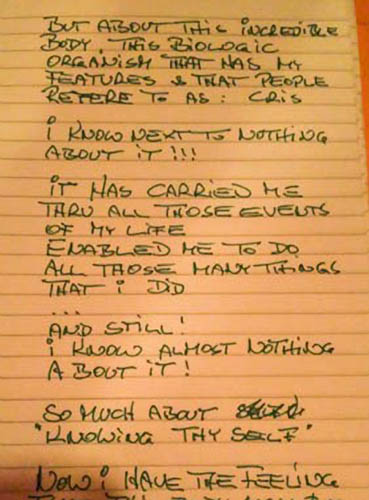 BUT ABOUT THIS INCREDIBLE
BODY, THIS BIOLOGIC
ORGANISM THAT HAS MY
FEATURES & THAT PEOPLE
REFERE TO AS: CRIS
I KNOW NEXT TO NOTHING
ABOUT IT!!!
IT HAS CARRIED ME
THRU ALL THOSE EVENTS
OF MY LIFE
ENABLED ME TO DO
ALL THOSE MANY THINGS
THAT I DID
...
AND STILL!
I KNOW ALMOST NOTHING
ABOUT IT!
SO MUCH ABOUT
"KNOWING THY SELF"
NOW I HAVE THE FEELING